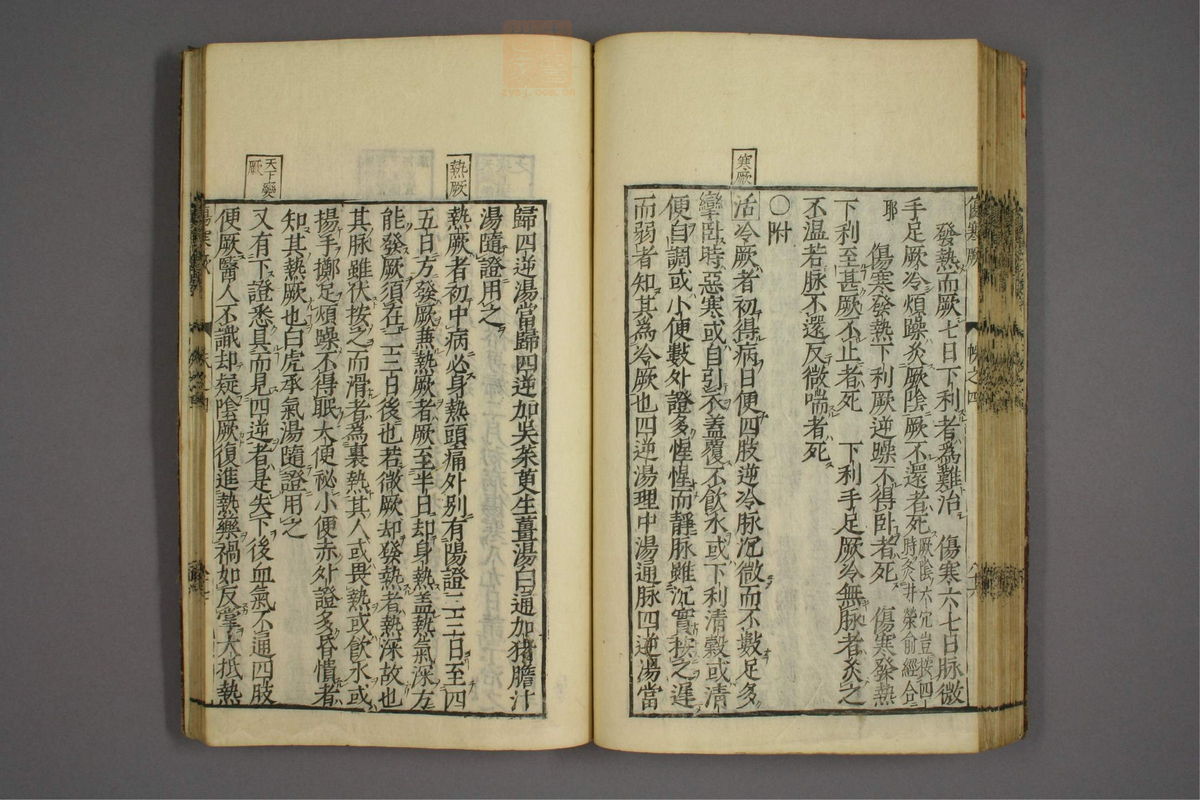 發熱而厥七日下利者爲難治　傷寒六七日脉微
手足厥冷煩躁灸厥陰厥不還者死
耶　傷寒發熱下利厥逆躁不得卧者死　傷寒發熱
下利至甚厥不止者死　下利手足厥冷無脉者灸之
不溫若脉不還反微喘者死
〇附
寒厥
活冷厥者初得病日便四肢逆冷脉沉微而不數足多
攣卧時惡寒或自引衣蓋覆不飲水或下利清穀或清
便自調或小便數外證多惺惺而靜脉雖沉實按之遲
而弱者知其爲冷厥也四逆湯理中湯通脉四逆湯當
歸四逆湯當歸四逆加吳茱萸生薑湯白通加猪膽汁
湯隨證用之
熱厥
熱厥者初中病必身熱頭痛外別有陽證二三日至四
五日方發厥兼熱厥者厥至半日却身熱盖熱氣深方
能發厥須在二三日後也若微厥却發熱者熱深故也
其脉雖伏按之而滑者爲裏熱其人或畏熱或飲水或
揚手擲足煩躁不得眠大便祕小便赤外證多昏憒者
知其熱厥也白虎承氣湯隨證用之
又有下證悉具而見四逆者是失下後血氣不通四肢
便厥醫人不識却疑陰厥復進熱藥禍如反掌大抵熱